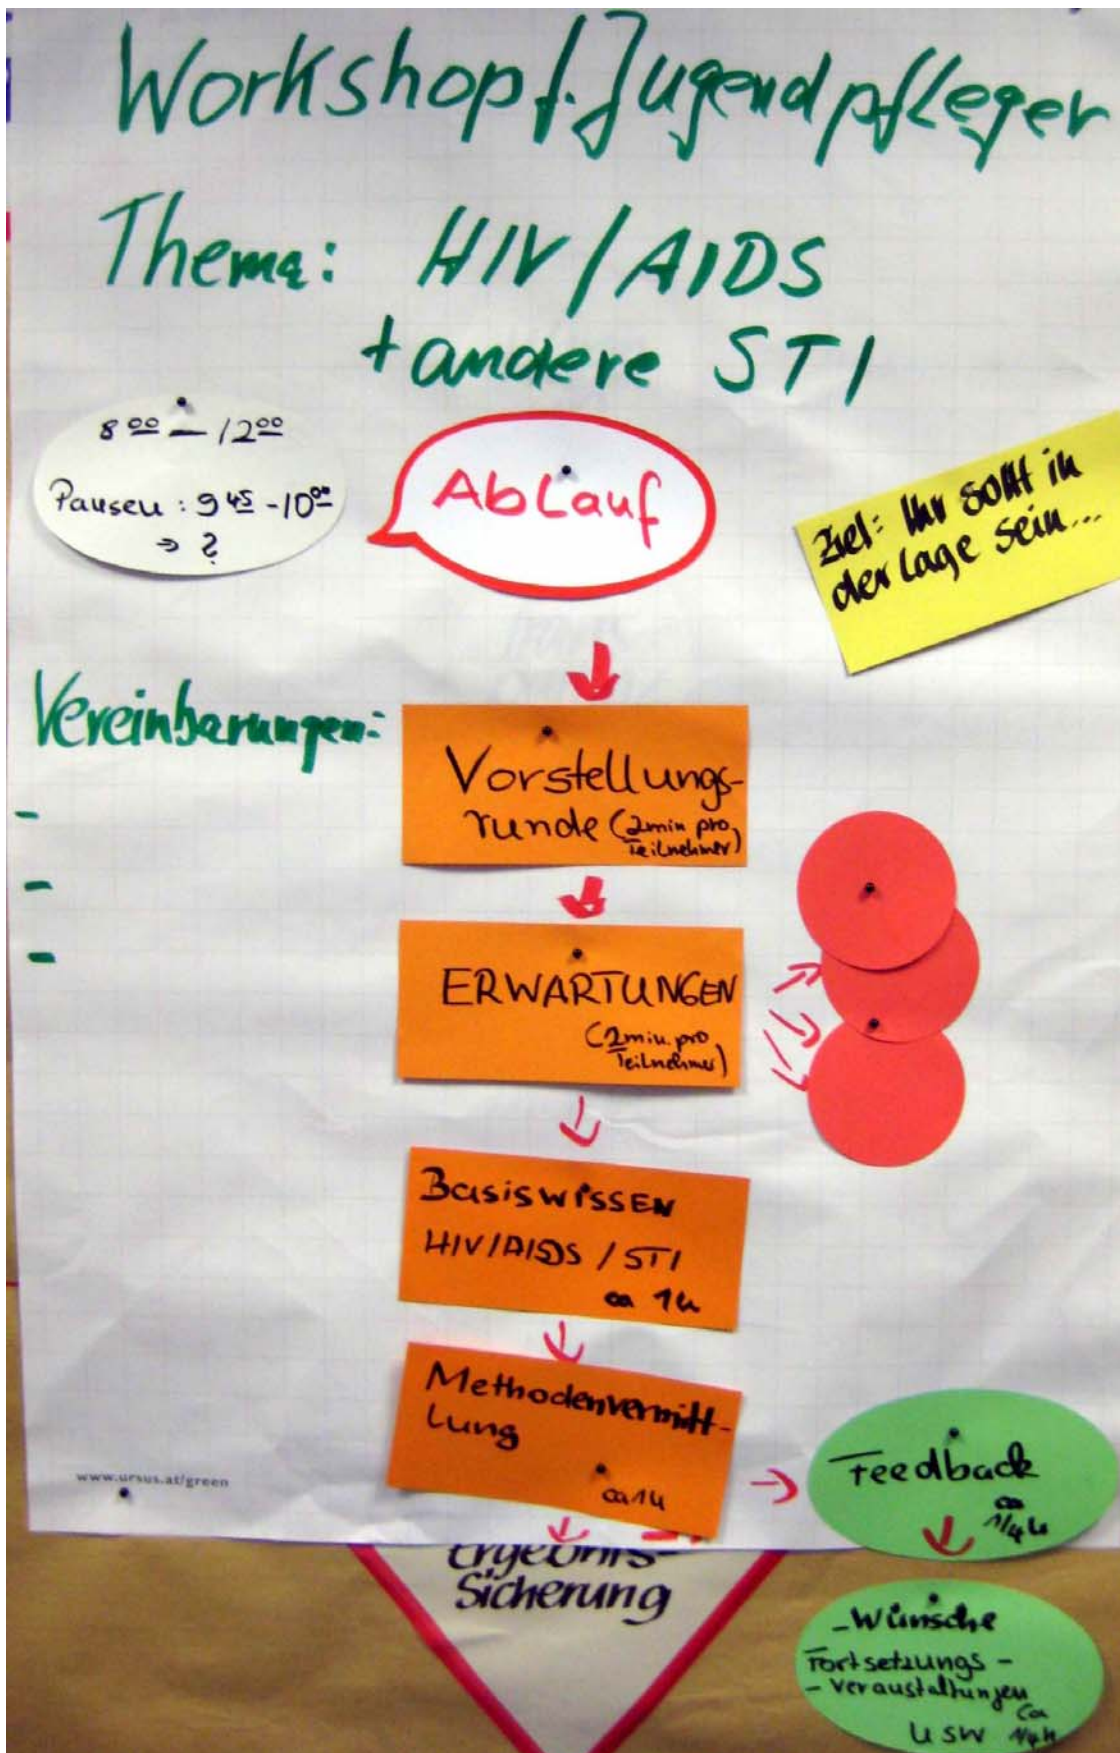 Workshop f. Jugendpfleger
Thema: HIV/AIDS
+ andere STI
8 00 – 12 00
Pausen: 9 45 - 10 00
→ ?
Ablauf
Ziel: Ihr sollt in
der Lage sein...
Vereinbarungen:
-
-
-
Vorstellungs-
runde (2min pro
Teilnehmer)
ERWARTUNGEN
(2min. pro
Teilnehmer)
Basiswissen
HIV/AIDS / STI
ca 1h
Methodenvermitt-
lung
ca 1h
www.ursus.at/green
Feedback
ca
1/4 h
Ergebnis-
Sicherung
- Wünsche
Fortsetzungs -
- veranstaltungen
usw
ca
1/4 h